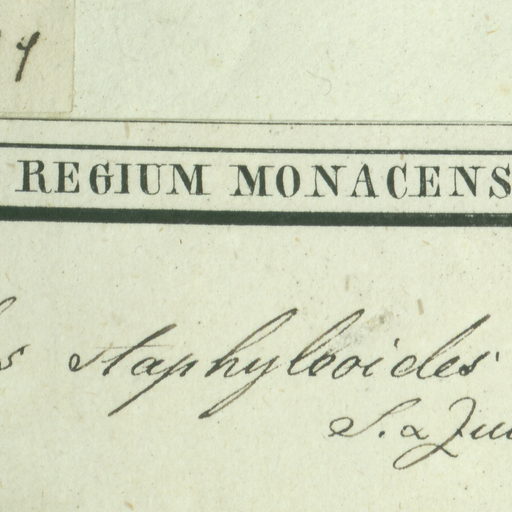 REGIUM MONACENS
s staphyleoides
S. & Zuc